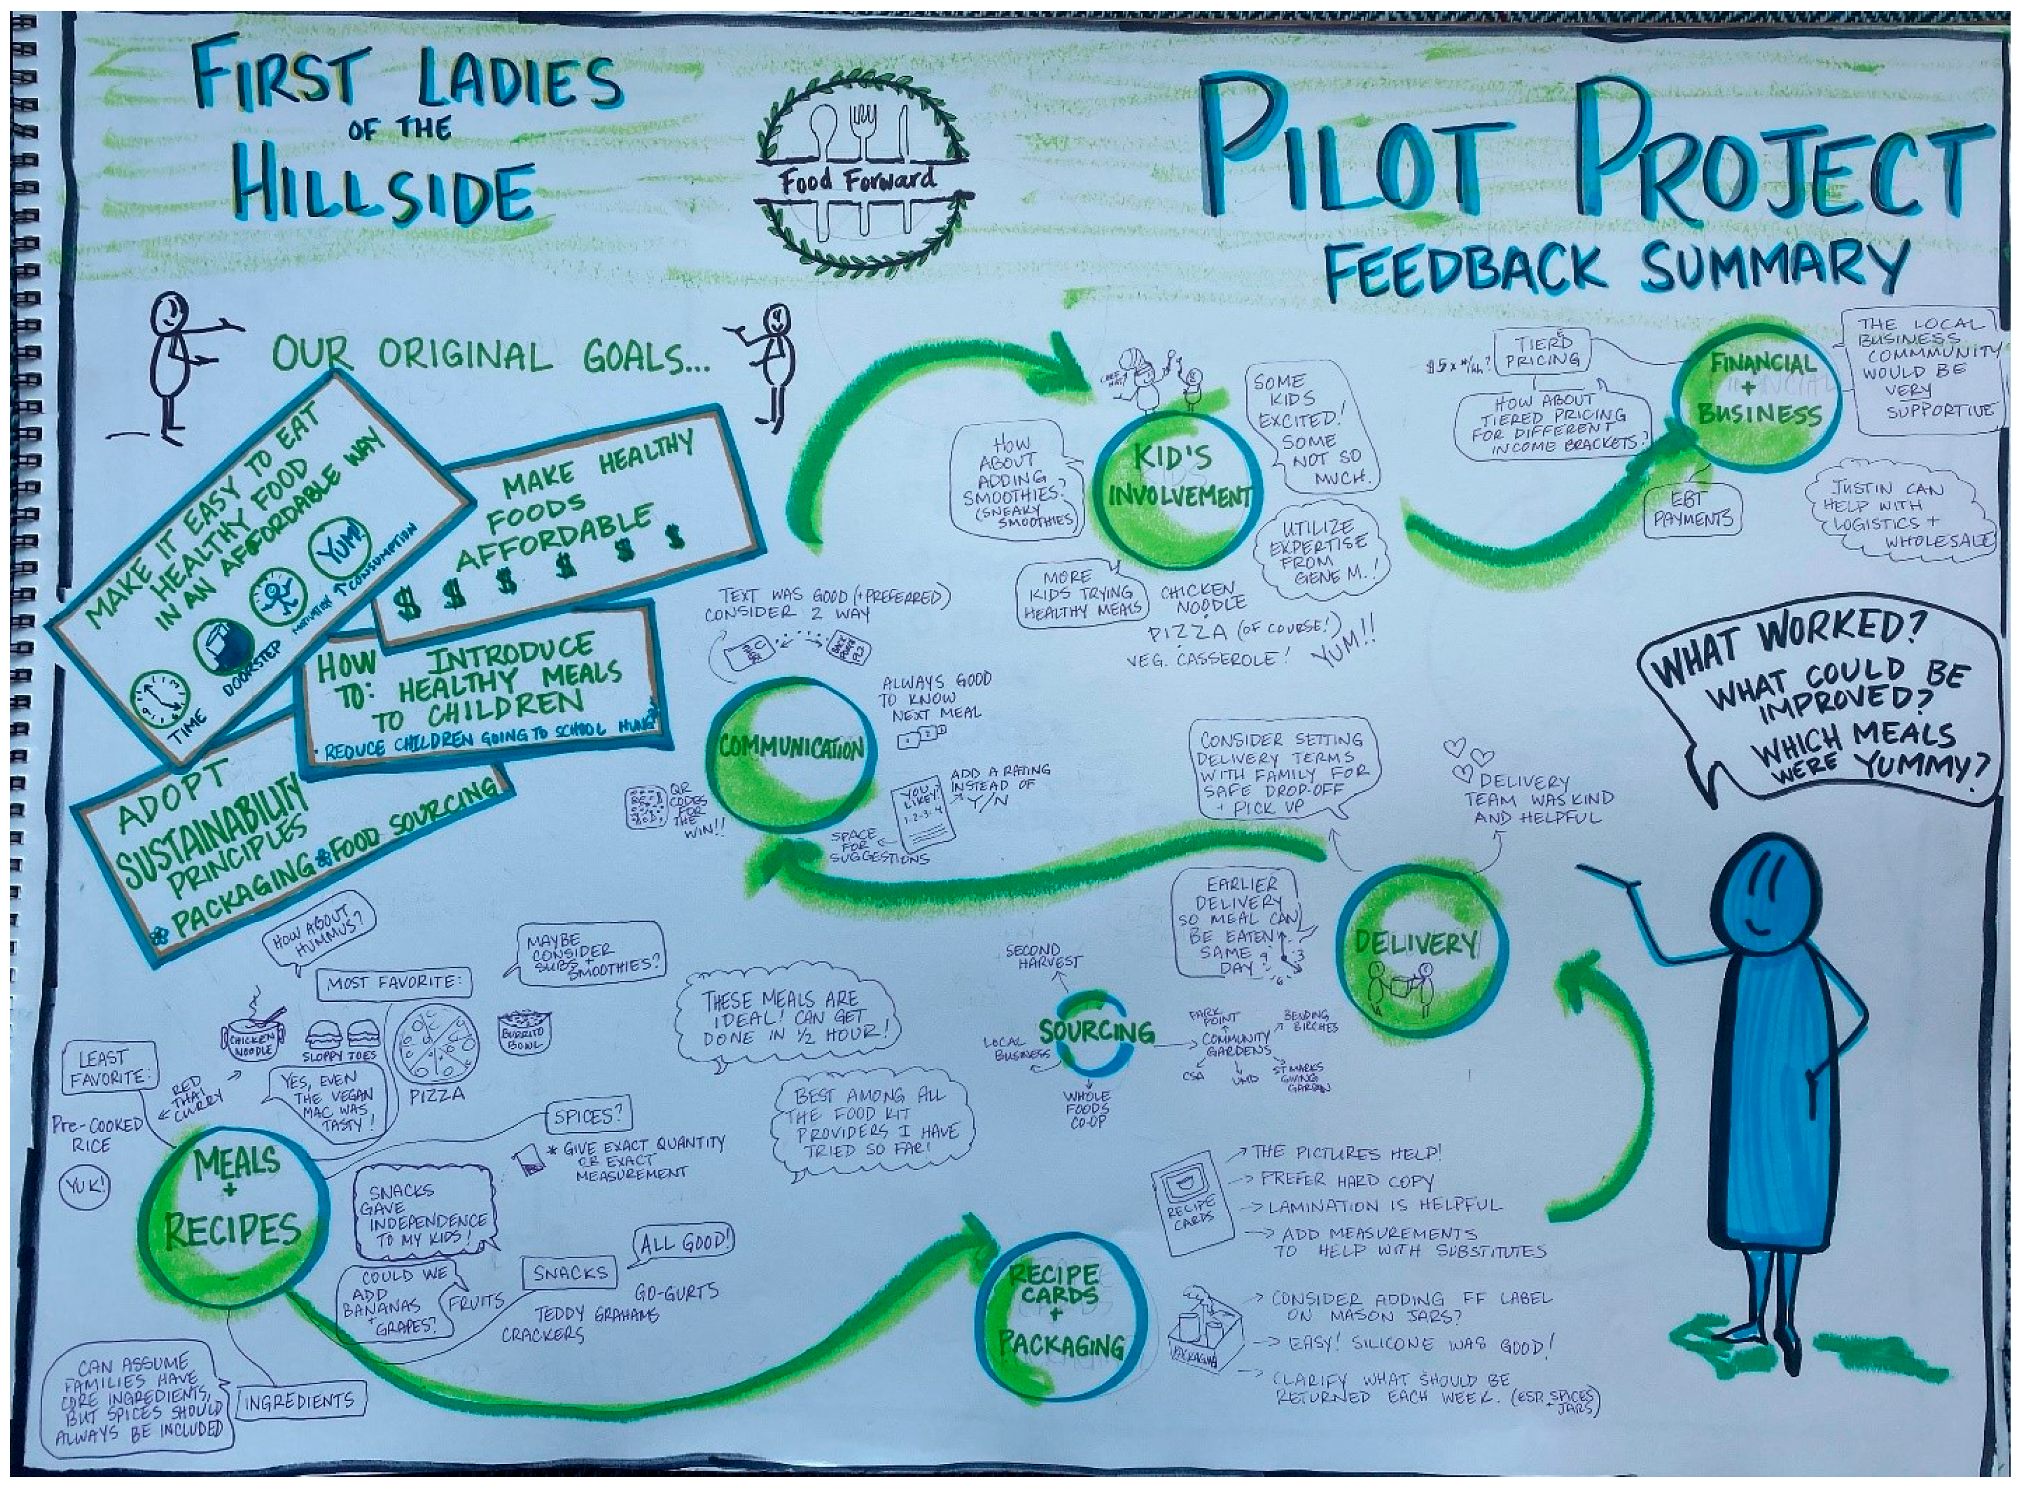 FIRST LADIES
OF THE
HILLSIDE
Food Forward
PILOT PROJECT
FEEDBACK SUMMARY
OUR ORIGINAL GOALS...
MAKE IT EASY TO EAT
HEALTHY FOOD
IN AN AFFORDABLE WAY
TIME
DOORSTEP
MOTIVATION
YUM!
↑ CONSUMPTION
MAKE HEALTHY
FOODS
AFFORDABLE
$ $ $ $ $ $
HOW TO:
INTRODUCE
HEALTHY MEALS
TO CHILDREN
• REDUCE CHILDREN GOING TO SCHOOL
ADOPT
SUSTAINABILITY
PRINCIPLES
* PACKAGING * FOOD SOURCING
MEALS
+
RECIPES
LEAST
FAVORITE:
PRE-COOKED
RICE
YUK!
RED
THAI
CURRY
HOW ABOUT
HUMMUS?
MOST FAVORITE:
CHICKEN
NOODLE
SLOPPY JOES
PIZZA
BURRITO
BOWL
MAYBE
CONSIDER
SUBS +
SMOOTHIES?
YES, EVEN
THE VEGAN
MAC WAS
TASTY!
SPICES?
* GIVE EXACT QUANTITY
OR EXACT
MEASUREMENT
SNACKS
GAVE
INDEPENDENCE
TO MY KIDS!
COULD WE
ADD
BANANAS
+
GRAPES?
FRUITS
SNACKS
ALL GOOD!
GO-GURTS
TEDDY GRAHAMS
CRACKERS
INGREDIENTS
CAN ASSUME
FAMILIES HAVE
CORE INGREDIENTS,
BUT SPICES SHOULD
ALWAYS BE INCLUDED
THESE MEALS ARE
IDEAL! CAN GET
DONE IN 1/2 HOUR!
BEST AMONG ALL
THE FOOD KIT
PROVIDERS I HAVE
TRIED SO FAR!
RECIPE
CARDS
+
PACKAGING
RECIPE
CARDS
THE PICTURES HELP!
PREFER HARD COPY
LAMINATION IS HELPFUL
ADD MEASUREMENTS
TO HELP WITH SUBSTITUTES
PACKAGING
CONSIDER ADDING FF LABEL
ON MASON JARS?
EASY! SILICONE WAS GOOD!
CLARIFY WHAT SHOULD BE
RETURNED EACH WEEK. (ESP. SPICES
+ JARS)
SOURCING
SECOND
HARVEST
LOCAL
BUSINESS
WHOLE
FOODS
CO-OP
COMMUNITY
GARDENS
PARK
POINT
BENDING
BIRCHES
CSA
UMD
ST MARKS
GIVING
GARDEN
DELIVERY
EARLIER
DELIVERY
SO MEAL CAN
BE EATEN
SAME
DAY
CONSIDER SETTING
DELIVERY TERMS
WITH FAMILY FOR
SAFE DROP-OFF
+ PICK UP
DELIVERY
TEAM WAS KIND
AND HELPFUL
COMMUNICATION
TEXT WAS GOOD (+PREFERRED)
CONSIDER 2 WAY
ALWAYS GOOD
TO KNOW
NEXT MEAL
1 2 3
QR
CODES
FOR
THE
WIN!!
YOU
LIKEY?
1-2-3-4
ADD A RATING
INSTEAD OF
Y/N
SPACE
FOR
SUGGESTIONS
KID'S
INVOLVEMENT
HOW
ABOUT
ADDING
SMOOTHIES?
(SNEAKY
SMOOTHIES)
SOME
KIDS
EXCITED!
SOME
NOT SO
MUCH.
UTILIZE
EXPERTISE
FROM
GENE M.!
MORE
KIDS TRYING
HEALTHY MEALS
CHICKEN
NOODLE
PIZZA (OF COURSE!)
VEG. CASSEROLE!
YUM!!
FINANCIAL
+
BUSINESS
TIER'D
PRICING
HOW ABOUT
TIERED PRICING
FOR DIFFERENT
INCOME BRACKETS?
EBT
PAYMENTS
THE LOCAL
BUSINESS
COMMMUNITY
WOULD BE
VERY
SUPPORTIVE
JUSTIN CAN
HELP WITH
LOGISTICS +
WHOLESALE
WHAT WORKED?
WHAT COULD BE
IMPROVED?
WHICH MEALS
WERE YUMMY?